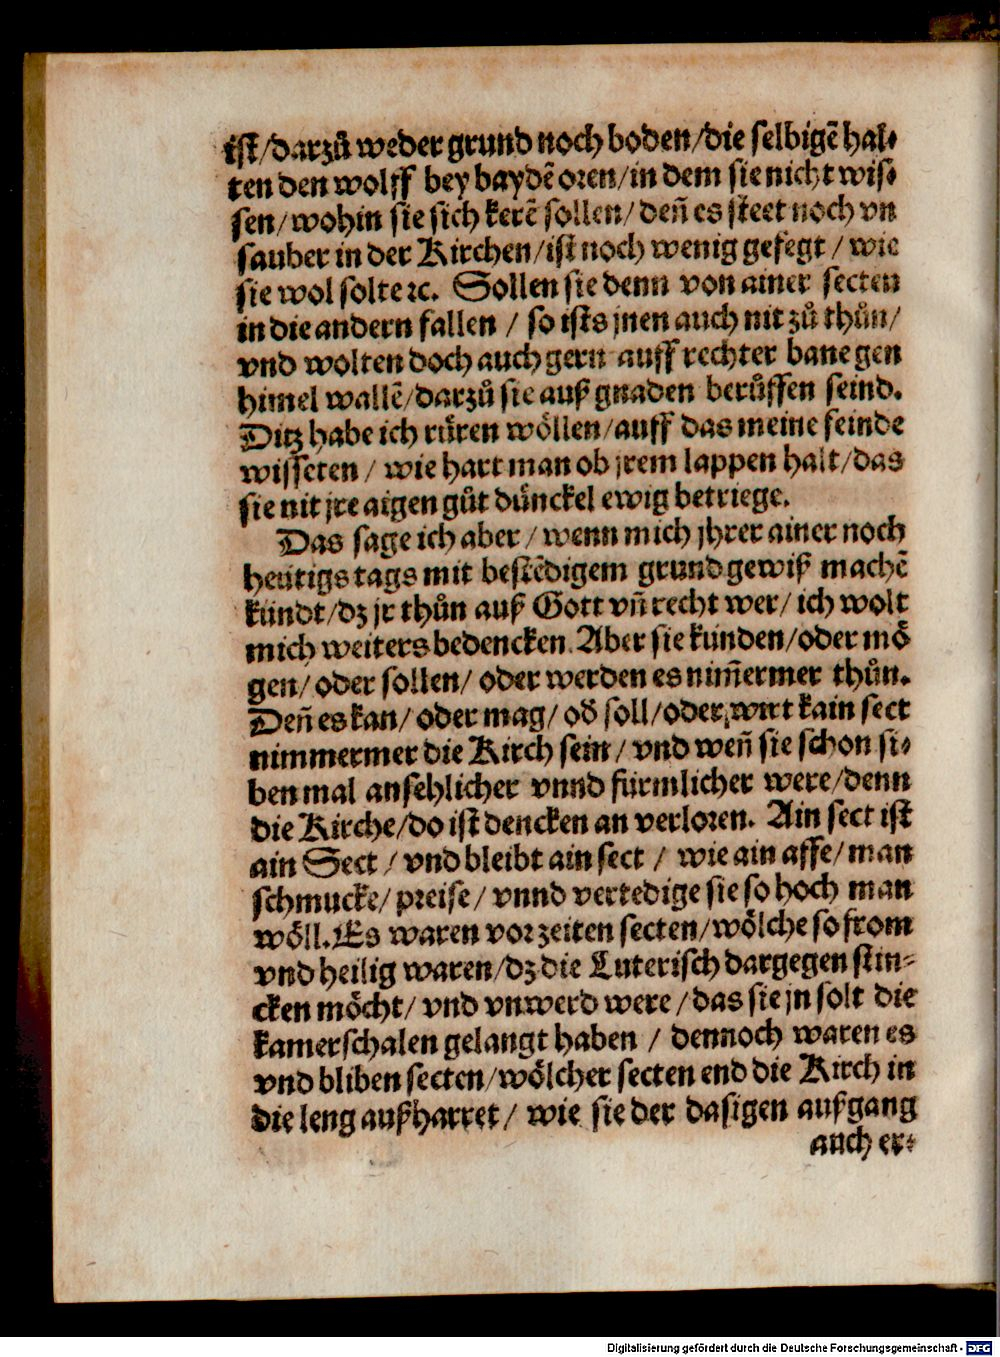 ist/darzů weder grund noch boden/die selbigẽ hal⸗
ten den wolff bey baydẽ oren/in dem sie nicht wis⸗
sen/wohin sie sich kerẽ sollen/ deñ es steet noch vn
sauber in der Kirchen/ist noch wenig gefegt / wie
sie wol solte ꝛc. Sollen sie denn von ainer secten
in die andern fallen / so ists jnen auch nit zů thůn/
vnd wolten doch auch gern auff rechter bane gen
himel wallẽ/darzů sie auß gnaden berůffen seind.
Ditz habe ich rüren wöllen/auff das meine feinde
wisseten / wie hart man ob jrem lappen halt/das
sie nit jre aigen gůt dünckel ewig betriege.
Das sage ich aber / wenn mich jhrer ainer noch
heütigs tags mit bestẽdigem grund gewiß machẽ
kündt/dz jr thůn auß Gott vñ recht wer/ ich wolt
mich weiters bedencken. Aber sie künden/oder mö
gen/ oder sollen/ oder werden es nim̃ermer thůn.
Deñ es kan/ oder mag/ oď soll/oder wirt kain sect
nimmermer die Kirch sein / vnd weñ sie schon si⸗
ben mal ansehlicher vnnd fürmlicher were/denn
die Kirche/do ist dencken an verloren. Ain sect ist
ain Sect / vnd bleibt ain sect / wie ain affe/ man
schmucke/ preise/ vnnd vertedige sie so hoch man
wöll. Es waren vor zeiten secten/wölche so from
vnd heilig waren/dz die Luterisch dargegen stin⸗
cken möcht/ vnd vnwerd were / das sie jn solt die
kamerschalen gelangt haben / dennoch waren es
vnd bliben secten/wölcher secten end die Kirch in
die leng außharret/ wie sie der dasigen außgang
auch er⸗
Digitalisierung gefördert durch die Deutsche Forschungsgemeinschaft - DFG